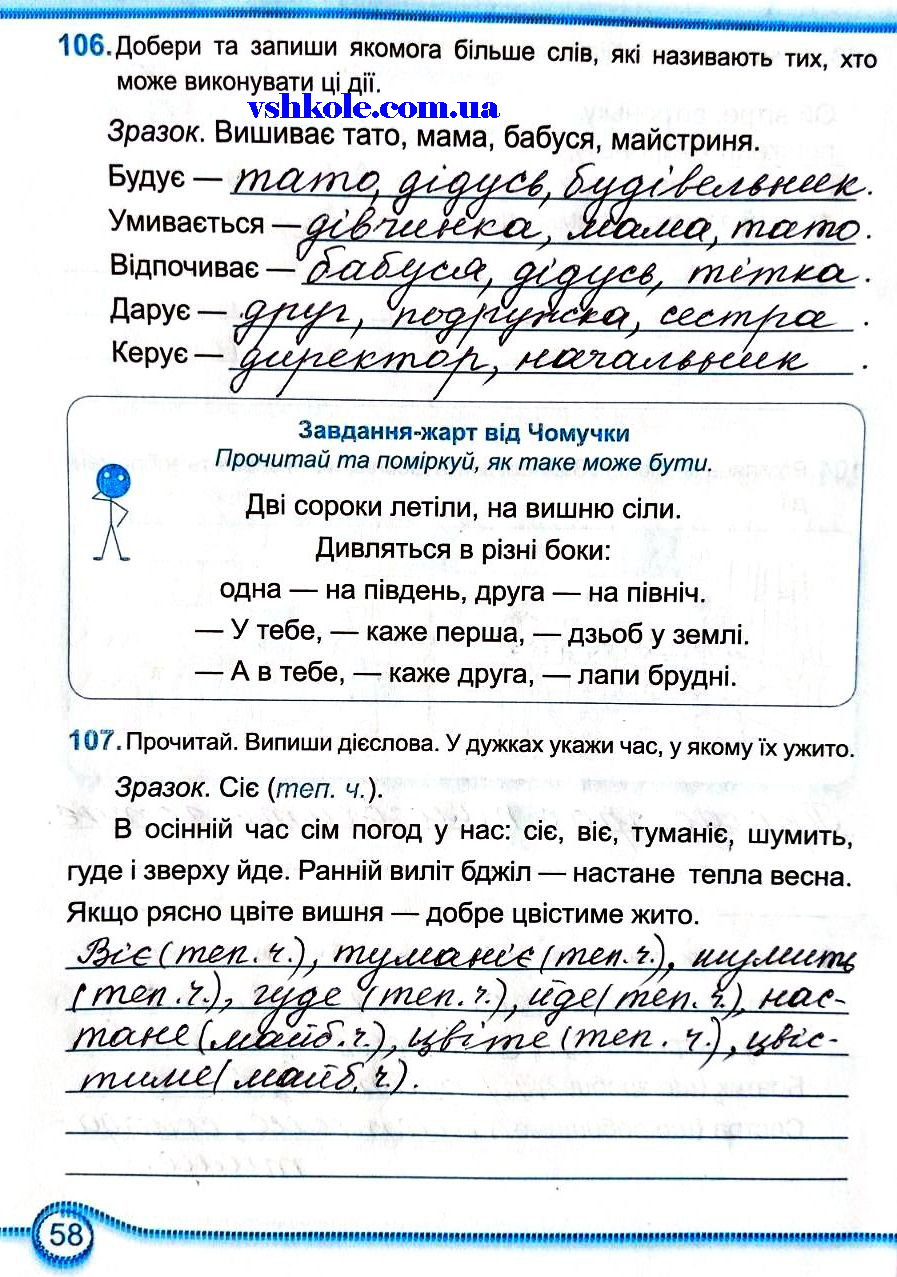 106. Добери та запиши якомога більше слів, які називають тих, хто
може виконувати ці дії.
vshkole.com.ua
Зразок. Вишиває тато, мама, бабуся, майстриня.
Будує — тато, дідусь, будівельник.
Умивається — дівчинка, мама, тато.
Відпочиває — бабуся, дідусь, тітка.
Дарує — друг, подружка, сестра.
Керує — директор, начальник.
Завдання-жарт від Чомучки
Прочитай та поміркуй, як таке може бути.
Дві сороки летіли, на вишню сіли.
Дивляться в різні боки:
одна — на південь, друга — на північ.
— У тебе, — каже перша, — дзьоб у землі.
— А в тебе, — каже друга, — лапи брудні.
107. Прочитай. Випиши дієслова. У дужках укажи час, у якому їх ужито.
Зразок. Сіє (теп. ч.).
В осінній час сім погод у нас: сіє, віє, туманіє, шумить,
гуде і зверху йде. Ранній виліт бджіл — настане тепла весна.
Якщо рясно цвіте вишня — добре цвістиме жито.
Віє (теп. ч.), туманіє (теп. ч.), шумить
(теп. ч.), гуде (теп. ч.), йде (теп. ч.), нас-
тане (майб. ч.), цвіте (теп. ч.), цвіс-
тиме (майб. ч.).
58